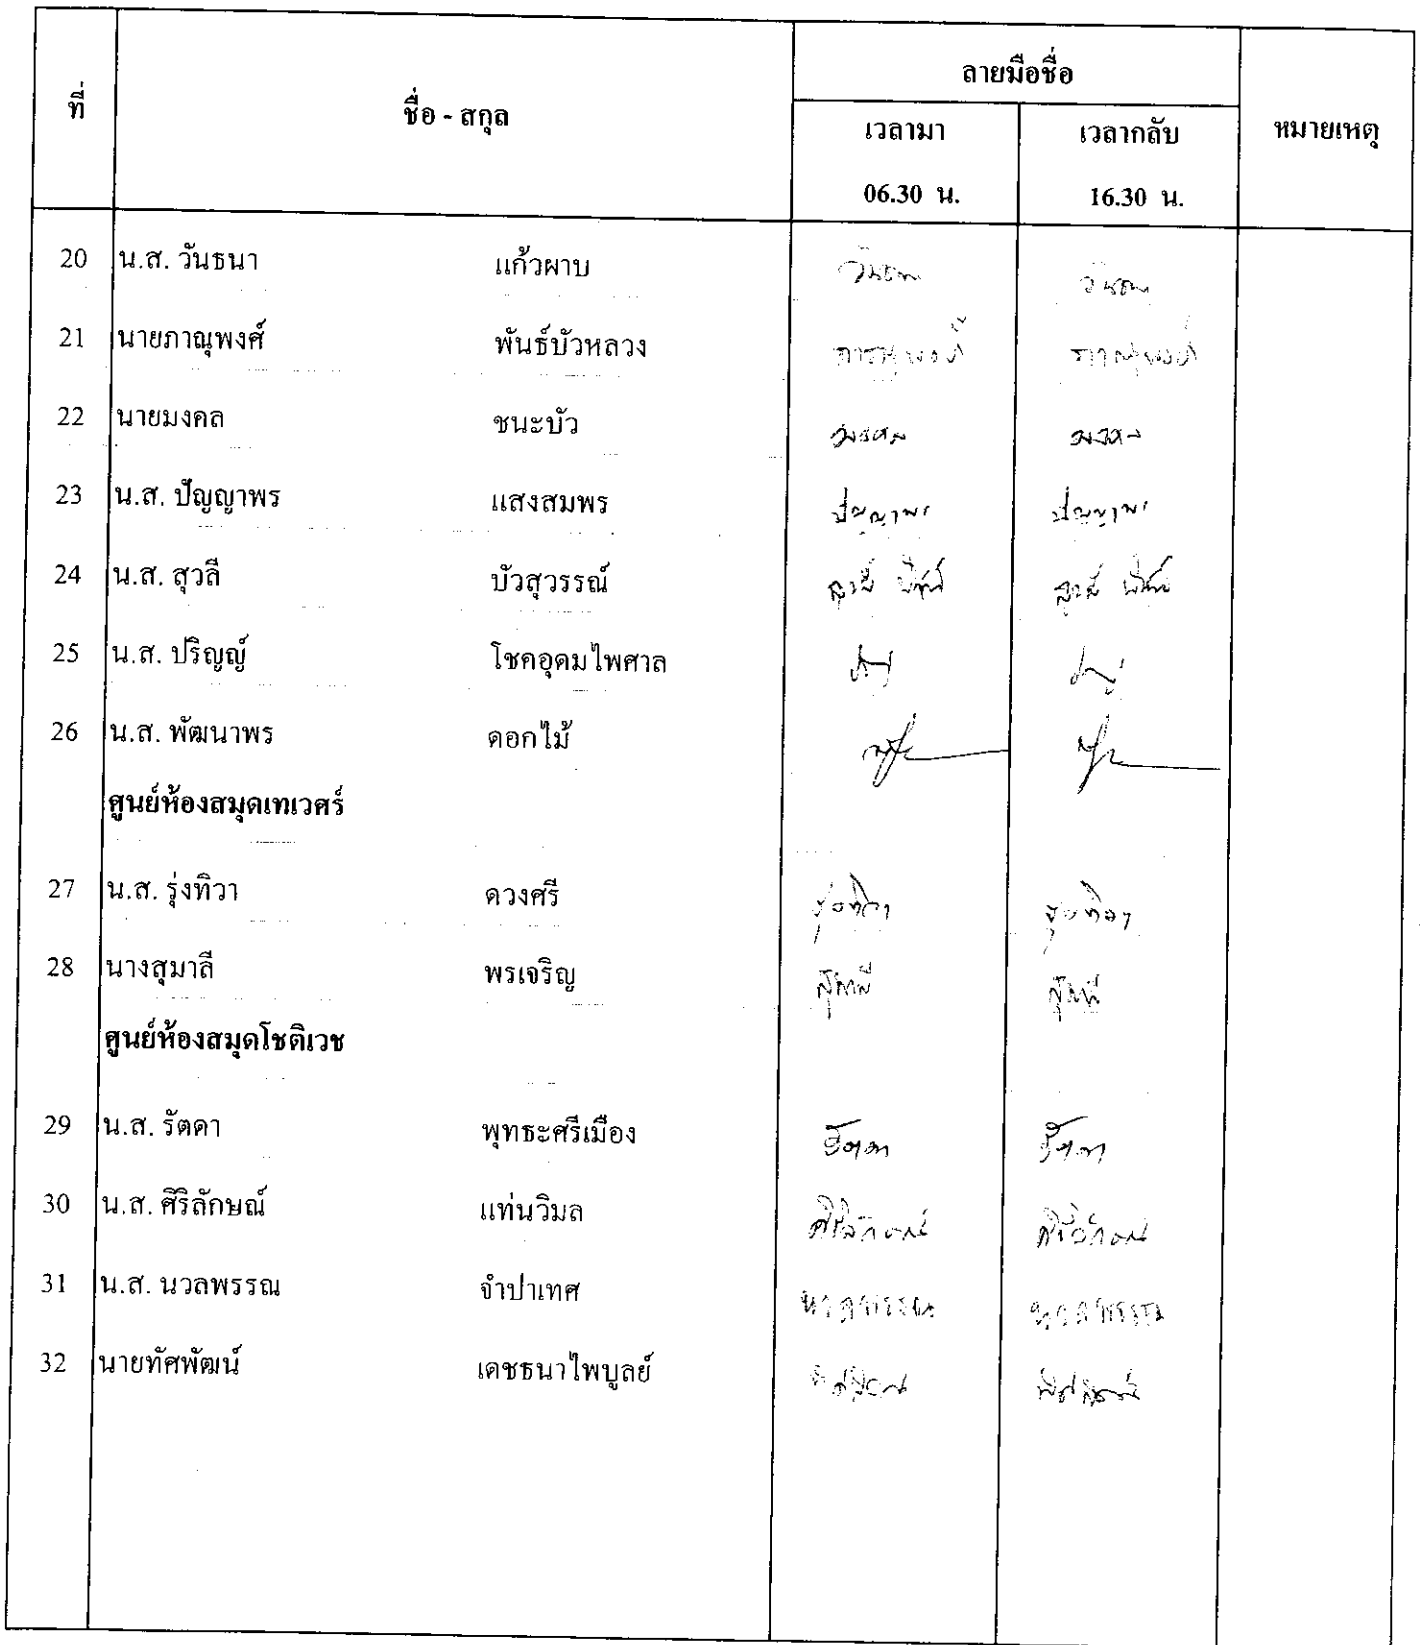 ที่ ชื่อ - สกุล ลายมือชื่อ หมายเหตุ
เวลามา เวลากลับ
06.30 น. 16.30 น.
20 น.ส. วันธนา แก้วผาบ วันธนา วันธนา
21 นายภาณุพงศ์ พันธ์บัวหลวง ภาณุพงศ์ ภาณุพงศ์
22 นายมงคล ชนะบัว มงคล มงคล
23 น.ส. ปัญญาพร แสงสมพร ปัญญาพร ปัญญาพร
24 น.ส. สุวลี บัวสุวรรณ์ สุวลี สุวลี
25 น.ส. ปริญญ์ โชคอุดมไพศาล
26 น.ส. พัฒนาพร ดอกไม้
ศูนย์ห้องสมุดเทเวศร์
27 น.ส. รุ่งทิวา ดวงศรี รุ่งทิวา รุ่งทิวา
28 นางสุมาลี พรเจริญ สุมาลี สุมาลี
ศูนย์ห้องสมุดโชติเวช
29 น.ส. รัตดา พุทธะศรีเมือง รัตดา รัตดา
30 น.ส. ศิริลักษณ์ แท่นวิมล ศิริลักษณ์ ศิริลักษณ์
31 น.ส. นวลพรรณ จำปาเทศ นวลพรรณ นวลพรรณ
32 นายทัศพัฒน์ เดชธนาไพบูลย์ ทัศพัฒน์ ทัศพัฒน์